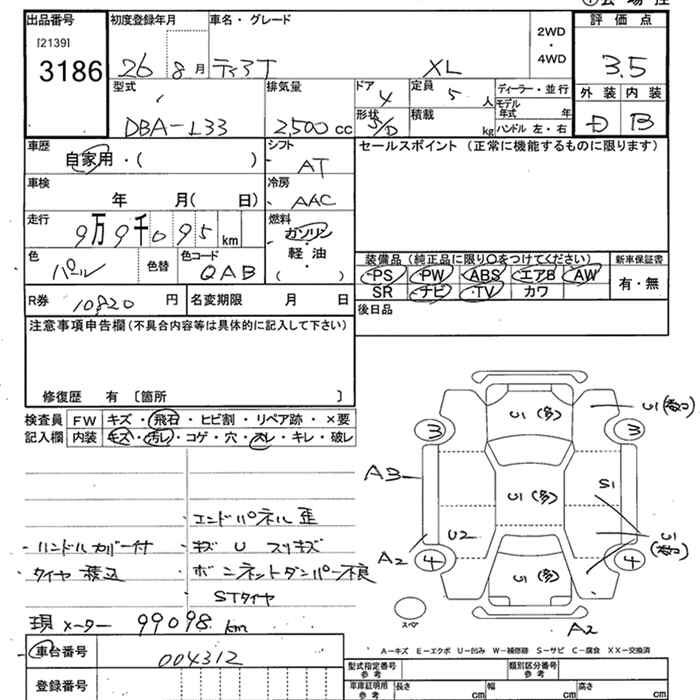 出品番号 初度登録年月 車名・グレード 2WD・4WD 評価点
[2139]
3186 26 8月 ティアナ XL 3.5
型式 排気量 ドア 定員 ディーラー・並行 外装 内装
DBA-L33 2,500cc 4 5人 モデル年式 年 D B
形状 積載 kg ハンドル 左・右
S/D
車歴 シフト セールスポイント (正常に機能するものに限ります)
自家用・( ) AT
車検 冷房
年 月( 日) AAC
走行 燃料
9万9千095km ガソリン・軽油( )
色 色替 色コード 装備品(純正品に限り○をつけてください) 新車保証書
パール QAB PS PW ABS エアB AW 有・無
SR ナビ TV カワ
R券 10820円 名変期限 月 日 後日品
注意事項申告欄(不具合内容等は具体的に記入して下さい)
修復歴 有 〔箇所 〕
検査員 FW キズ・飛石・ヒビ割・リペア跡・×要
記入欄 内装 キズ・汚レ・コゲ・穴・スレ・キレ・破レ
U1(多) U1
3 3
A3 U1(多) S1
U2 U1
A2 4 4
U1(多)
スペア A2
・エンドパネル歪
・ハンドルカバー付 ・キズ U スリキズ
タイヤ積込 ・ボンネットダンパー不良
STタイヤ
現メーター 99098km
A-キズ E-エクボ U-凹み W-補修跡 S-サビ C-腐食 XX-交換済
車台番号 004312 型式指定番号 参考 類別区分番号 参考
登録番号 車庫証明用 参考 長さ cm 幅 cm 高さ cm